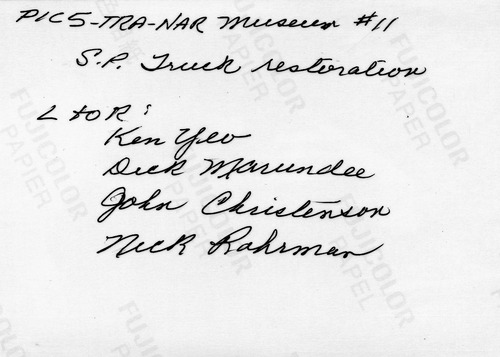 PICS-TRA-NAR Museum #11
S.P. Truck restoration
L to R:
Ken Yeo
Dick Marundee
John Christenson
Nick Rohrman
FUJICOLOR PAPER
FUJICOLOR PAPIER
FUJICOLOR PAPIER
FUJICOLOR PAPEL